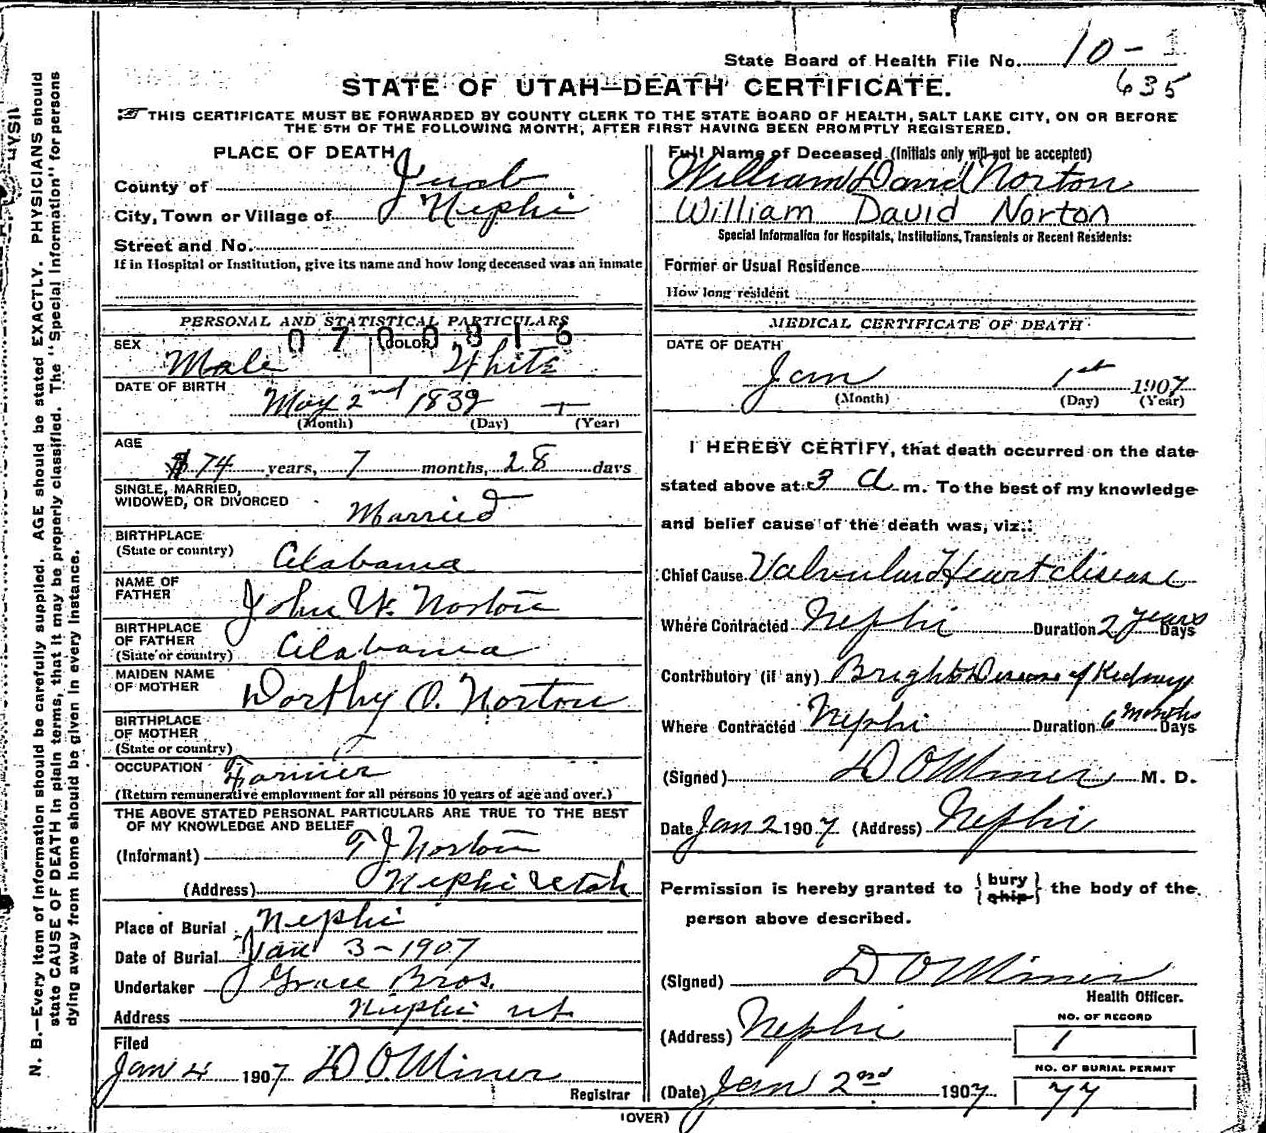 State Board of Health File No. 10-1
635
STATE OF UTAH—DEATH CERTIFICATE.
THIS CERTIFICATE MUST BE FORWARDED BY COUNTY CLERK TO THE STATE BOARD OF HEALTH, SALT LAKE CITY, ON OR BEFORE
THE 5TH OF THE FOLLOWING MONTH, AFTER FIRST HAVING BEEN PROMPTLY REGISTERED.
N. B.—Every item of information should be carefully supplied. AGE should be stated EXACTLY. PHYSICIANS should
state CAUSE OF DEATH in plain terms, that it may be properly classified. The "Special Information" for persons
dying away from home should be given in every instance.
PLACE OF DEATH
County of Juab
City, Town or Village of Nephi
Street and No.
If in Hospital or Institution, give its name and how long deceased was an inmate
PERSONAL AND STATISTICAL PARTICULARS
0700816
SEX Male COLOR White
DATE OF BIRTH May 2nd 1832
(Month) (Day) (Year)
AGE
74 years, 7 months, 28 days
SINGLE, MARRIED,
WIDOWED, OR DIVORCED Married
BIRTHPLACE
(State or country) Alabama
NAME OF
FATHER John W. Norton
BIRTHPLACE
OF FATHER
(State or country) Alabama
MAIDEN NAME
OF MOTHER Dorthy O. Norton
BIRTHPLACE
OF MOTHER
(State or country)
OCCUPATION Farmer
(Return remunerative employment for all persons 10 years of age and over.)
THE ABOVE STATED PERSONAL PARTICULARS ARE TRUE TO THE BEST
OF MY KNOWLEDGE AND BELIEF
(Informant) T J Norton
(Address) Nephi Utah
Place of Burial Nephi
Date of Burial Jan 3-1907
Undertaker Grace Bros.
Address Nephi Ut.
Filed
Jan 4 1907 D O Miner
Registrar
Full Name of Deceased (Initials only will not be accepted)
William David Norton
William David Norton
Special Information for Hospitals, Institutions, Transients or Recent Residents:
Former or Usual Residence
How long resident
MEDICAL CERTIFICATE OF DEATH
DATE OF DEATH
Jan 1st 1907
(Month) (Day) (Year)
I HEREBY CERTIFY, that death occurred on the date
stated above at 3 A m. To the best of my knowledge
and belief cause of the death was, viz.:
Chief Cause Valvular Heart disease
Where Contracted Nephi Duration 2 years Days
Contributory (if any) Brights Disease of Kidney
Where Contracted Nephi Duration 6 months Days
(Signed) D O Miner M. D.
Date Jan 2 1907 (Address) Nephi
Permission is hereby granted to { bury ship } the body of the
person above described.
(Signed) D O Miner
Health Officer.
(Address) Nephi
NO. OF RECORD
1
NO. OF BURIAL PERMIT
(Date) Jan 2nd 1907 77
(OVER)